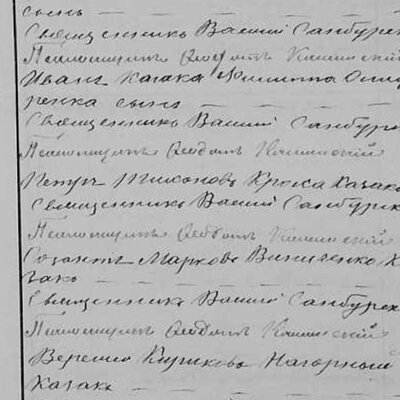 сынъ
Священникъ Василій Санбурск
Псаломщикъ Ѳеодотъ Кашинскій
Иванъ Казака Филиппа Оси
ренка сынъ
Священникъ Василій Санбурск
Псаломщикъ Ѳеодотъ Кашинскій
Петръ Тихоновъ Крока Казакъ
Священникъ Василій Санбурск
Псаломщикъ Ѳеодотъ Кашинскій
Созонтъ Марковъ Виниченко К
закъ
Священникъ Василій Санбурск
Псаломщикъ Ѳеодотъ Кашинскій
Нагорный
Казакъ